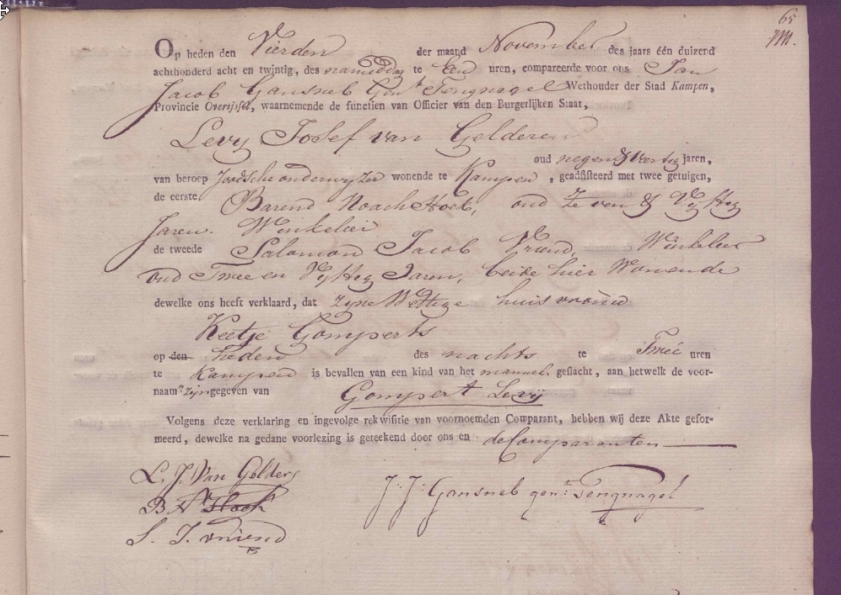 65
M.
Op heden den Vierden der maand November des jaars één duizend
achthonderd acht en twintig, des namiddag te Een uren, compareerde voor ons Jan
Jacob Gansneb Gent Tengnagel Wethouder der Stad Kampen,
Provincie Overijssel, waarnemende de functien van Officier van den Burgerlijken Staat,
Levy Josef van Gelderen
oud negen & veertig jaren,
van beroep Joodsche onderwyzer wonende te Kampen, geadsisteerd met twee getuigen,
de eerste, Barend Noach Hoek, oud Zeven & Vyftig
Jaren. Winkelier
de tweede Salomon Jacob Vriend, Winkelier
oud Twee en Vyftig Jaren, beide hier Wonende
dewelke ons heeft verklaard, dat zyne Wettige huisvrouw
Keetje Gomperts
op den heden des nachts te Twee uren
te Kampen is bevallen van een kind van het mannel. geslacht, aan hetwelk de voor-
naamn zyn gegeven van Gompert Levij
Volgens deze verklaring en ingevolge rekwisitie van voornoemden Comparant, hebben wij deze Akte gefor-
meerd, dewelke na gedane voorlezing is geteekend door ons en de Comparanten
L. J. Van Gelders
B. N. Hoek
J. J. Gansneb gent Tengnagel
S. J. vriend